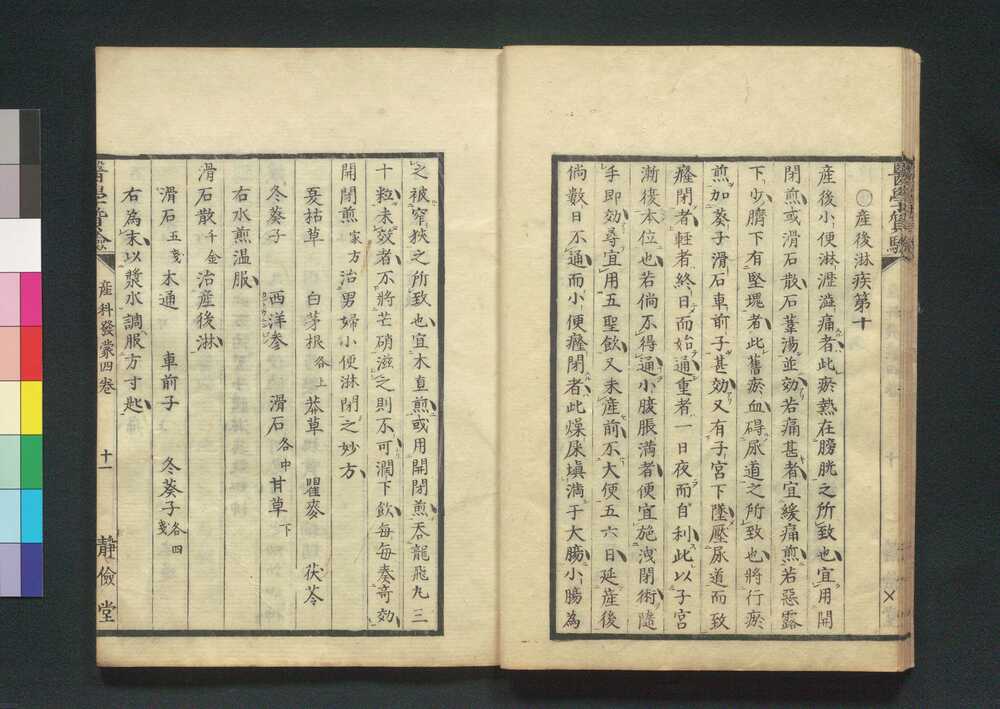 醫學質驗
○產後淋疾第十
產後小便淋瀝澁痛者此瘀熱在膀胱之所致也宜用開
閉煎或滑石散石葦湯並効若痛甚者宜緩痛煎若惡露
下少臍下有堅塊者此舊瘀血碍尿道之所致也將行瘀
煎加葵子滑石車前子甚効又有子宮下墜壓尿道而致
癃閉者輕者終日而始通重者一日夜而自利此以子宮
漸復本位也若倘不得通小腹脹滿者便宜施洩閉術隨
手即効尋宜用五聖飲又未產前不大便五六日延產後
倘數日不通而小便癃閉者此燥屎塡滿于大腸小腸為
之被窄狹之所致也宜木直煎或用開閉煎吞龍飛九三
十粒未效者不將芒硝滋之則不可潤下飲每每奏奇効
開閉煎 家方 治男婦小便淋閉之妙方
夏枯草 白茅根 各上 恭草 瞿麥 茯苓
冬葵子 西洋參 滑石 各中 甘草 下
右水煎温服
滑石散 千金 治產後淋
滑石 五戔 木通 車前子 冬葵子 各四戔
右為末以漿水調服方寸匙
醫學質驗 產科發蒙四卷 十一 靜儉堂